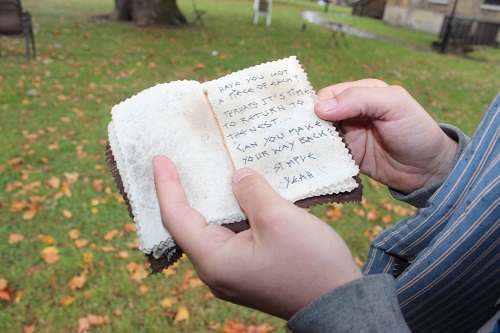 HAVE YOU GOT
A PIECE OF EACH?
PERHAPS IT'S TIME
TO RETURN TO
THE NEST...
CAN YOU MAKE
YOUR WAY BACK?
SIMPLE
YEAH